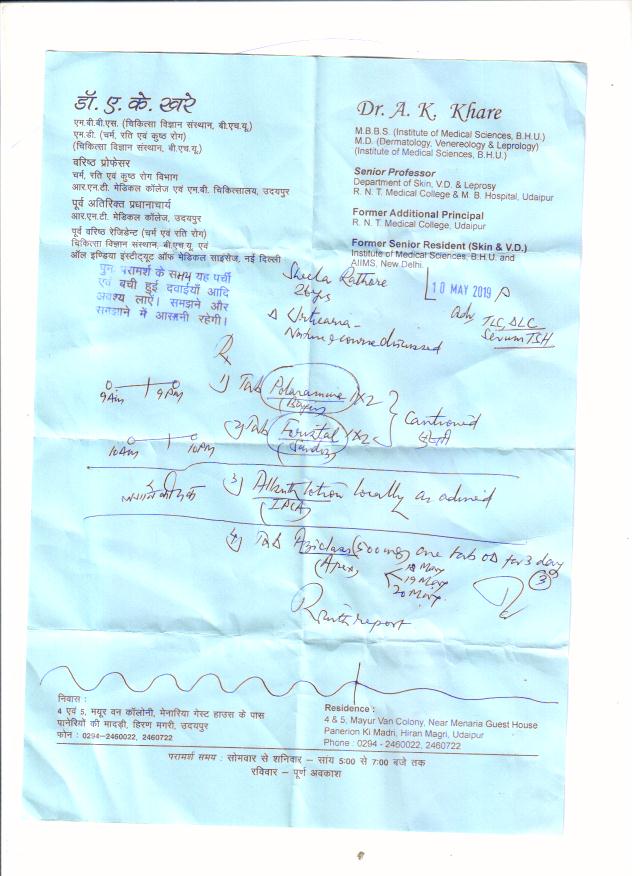 डॉ. ए. के. खरे
एम.बी.बी.एस. (चिकित्सा विज्ञान संस्थान, बी.एच.यू.)
एम.डी. (चर्म, रति एवं कुष्ठ रोग)
(चिकित्सा विज्ञान संस्थान, बी.एच.यू.)
वरिष्ठ प्रोफेसर
चर्म, रति एवं कुष्ठ रोग विभाग
आर.एन.टी. मेडिकल कॉलेज एवं एम.बी. चिकित्सालय, उदयपुर
पूर्व अतिरिक्त प्रधानाचार्य
आर.एन.टी. मेडिकल कॉलेज, उदयपुर
पूर्व वरिष्ठ रेजिडेन्ट (चर्म एवं रति रोग)
चिकित्सा विज्ञान संस्थान, बी.एच.यू. एवं
ऑल इण्डिया इंस्टीट्यूट ऑफ मेडिकल साइसेज, नई दिल्ली
Dr. A. K. Khare
M.B.B.S. (Institute of Medical Sciences, B.H.U.)
M.D. (Dermatology, Venereology & Leprology)
(Institute of Medical Sciences, B.H.U.)
Senior Professor
Department of Skin, V.D. & Leprosy
R. N. T. Medical College & M. B. Hospital, Udaipur
Former Additional Principal
R. N. T. Medical College, Udaipur
Former Senior Resident (Skin & V.D.)
Institute of Medical Sciences, B.H.U. and
AIIMS, New Delhi.
पुनः परामर्श के समय यह पर्ची
एवं बची हुई दवाईयाँ आदि
अवश्य लाएँ। समझने और
समझाने में आसानी रहेगी।
Sheela Rathore
26 yrs
10 MAY 2019
Δ Urticaria -
Nature & course discussed
Adv TLC, DLC
Serum TSH
Rx
9 Am 9 Pm
1) Tab Polaramine 1x2
(Bayer)
10 Am 10 Pm
2) Tab 1x2
3) lotion locally as advised
(IPCA)
4) Tab Aziclass (500mg) one tab OD for 3 days
(Apex)
18 May
19 May
20 May
3
R with report
निवास :
4 एवं 5, मयूर वन कॉलोनी, मेनारिया गेस्ट हाउस के पास
पानेरियों की मादड़ी, हिरण मगरी, उदयपुर
फोन : 0294-2460022, 2460722
Residence :
4 & 5, Mayur Van Colony, Near Menaria Guest House
Panerion Ki Madri, Hiran Magri, Udaipur
Phone : 0294 - 2460022, 2460722
परामर्श समय : सोमवार से शनिवार – सांय 5:00 से 7:00 बजे तक
रविवार – पूर्ण अवकाश